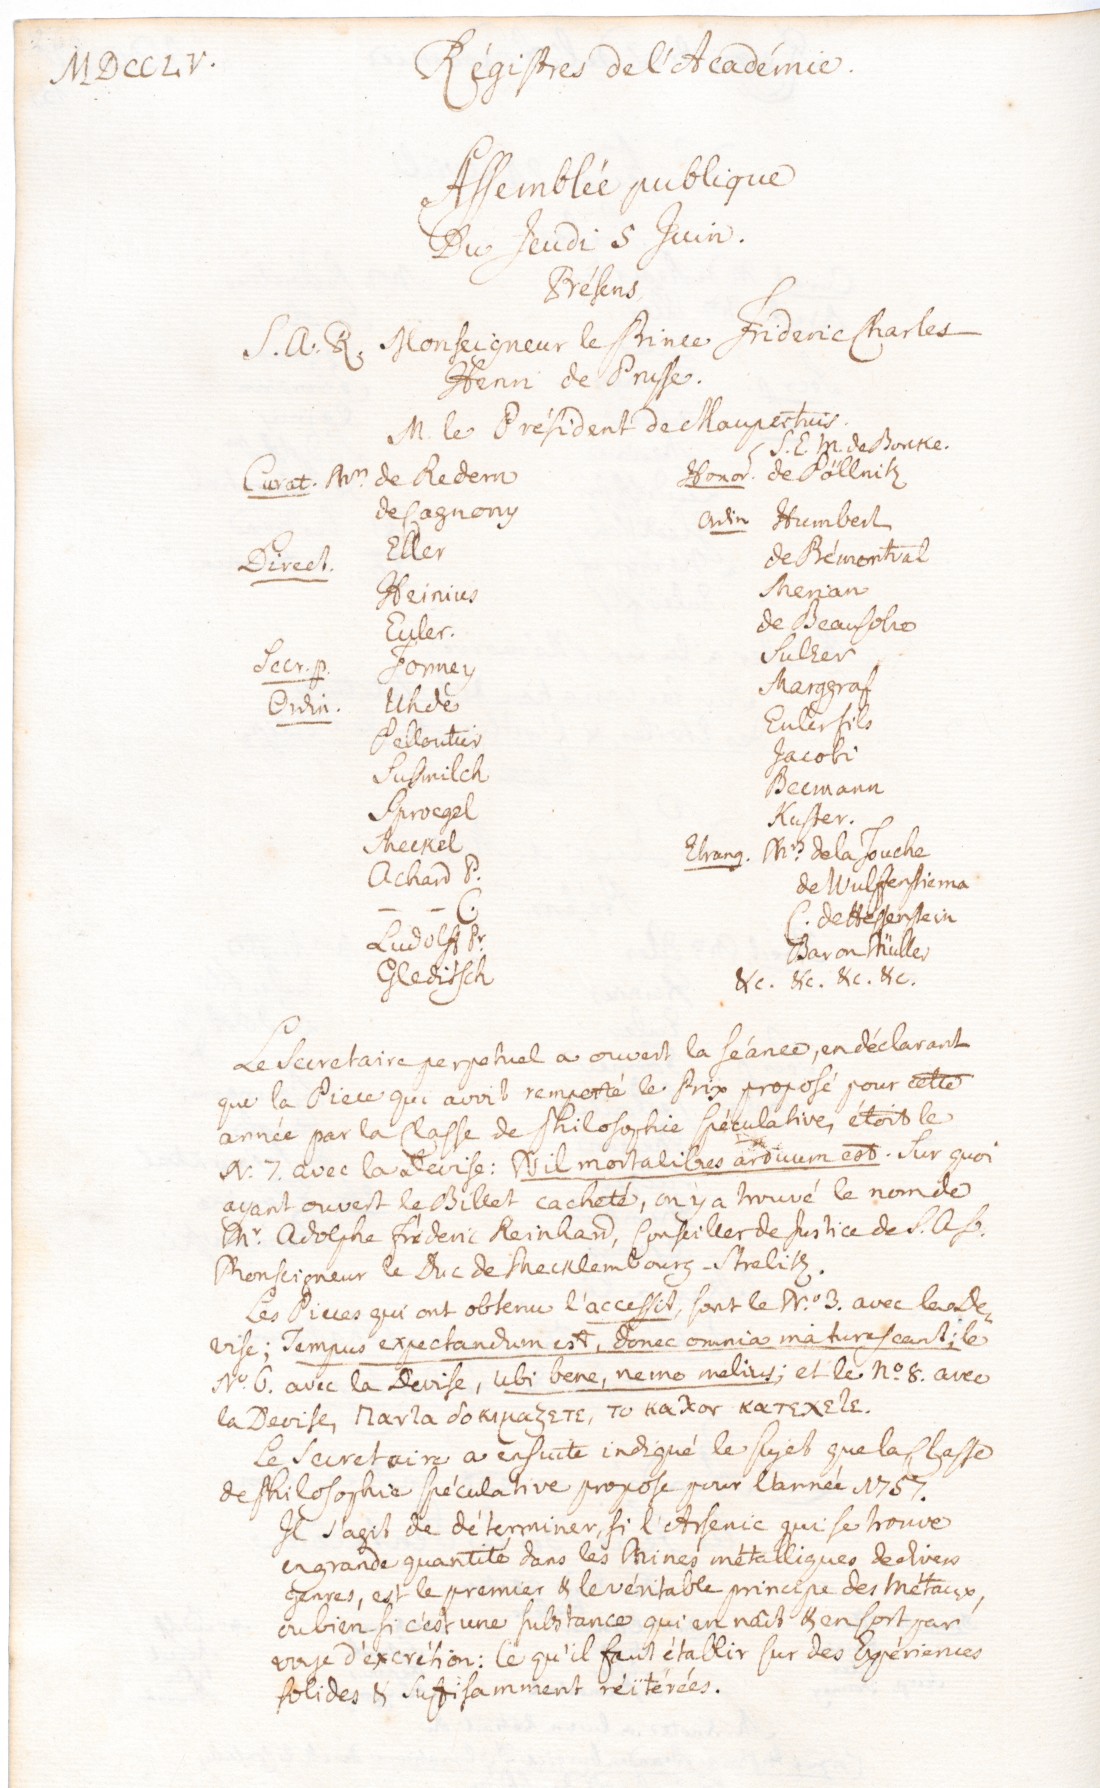 MDCCLV.
Régistres de l'Académie.
Assemblée publique
Du Jeudi 5 Juin.
Présens
S. A. R. Monseigneur le Prince Frideric Charles
Henri de Prusse.
M. le Président de Maupertuis.
S. E. M. de Borcke.
Curat. Mrs de Redern
de Cagnony
Direct. Eller
Heinius
Euler.
Secr. p. Formey
Ordin. Uhde
Pelloutier
Susmilch
Sproegel
Meckel
Achard P.
— — C.
Ludolff Pr.
Gleditsch
Honor. de Pöllnitz
Ordin Humbert
de Prémontval
Merian
de Beausobre
Sulzer
Marggraf
Euler fils
Jacobi
Becmann
Kuster.
Etrang. Mrs de la Touche
de Wulffenstierna
C. de Hessenstein
Baron Müller
&c. &c. &c. &c.
Le Secretaire perpetuel a ouvert la séance, en déclarant
que la Piece qui avoit remporté le Prix proposé pour cette
année par la Classe de Philosophie spéculative, étoit le
N. 7. avec la Devise: Nil mortalibus arduum est. Sur quoi
ayant ouvert le Billet cacheté, on y a trouvé le nom de
Mr. Adolphe Fréderic Reinhard, Conseiller de Justice de S. A. S.
Monseigneur le Duc de Mecklembourg-Strelitz.
Les Pieces qui ont obtenu l'accessit, sont le N.º 3. avec la De-
vise; Tempus expectandum est, donec omnia maturescant; le
Nº 6. avec la Devise, ubi bene, nemo melius; et le Nº 8. avec
la Devise, Παντα δοκιμαζετε, το καλον κατεχετε.
Le Secretaire a ensuite indiqué le sujet que la Classe
de Philosophie spéculative propose pour l'année 1757.
Il s'agit de déterminer, si l'Arsenic qui se trouve
en grande quantité dans les Mines métalliques de divers
genres, est le premier & le véritable principe des Métaux,
ou bien si c'est une substance qui en naît & en sort par
voye d'éxcrétion: Ce qu'il faut établir sur des Expériences
solides & suffisamment réïtérées.